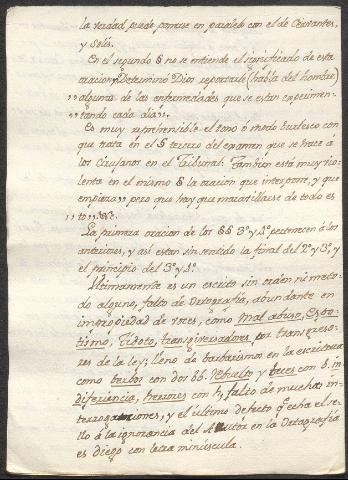 la verdad puede ponerse en paralelo con el de Cervantes,
y Solis.
En el segundo § no se entiende el significado de esta
oracion,, Determinó Dios repartirle (habla del hombre)
,, alguna de las enfermedades que se estan experimen-
,, tando cada dia,,.
Es muy reprehensible el tono ò modo burlesco con
que trata en el § tercero del examen que se hace á
los Cirujanos en el Tribunal: Tambien está muy vio-
lenta en el mismo § la oracion que interpone, y que
empieza,, pero que hay que maravillarse de todo es
,, to,, &c.
La primera oracion de los §§ 3º y 4º pertenecen á los
anteriores, y asi estan sin sentido la final del 2º y 3º, y
el principio del 3º y 4º.
Ultimamente es un escrito sin orden ni meto-
do alguno, falto de Ortografía, abundante en
impropiedad de voces, como mal abiso,
transgiversadores por transgreso-
res de la ley; lleno de barbarismos en la escritura
como berbos con dos bb. resulto y beces con b. in
diferiencia, herrores con h, falto de muchas in-
terrogaciones, y el ultimo defecto q.e echa el se-
llo á la ignorancia del Autor en la Ortografia
es diego con letra minuscula.